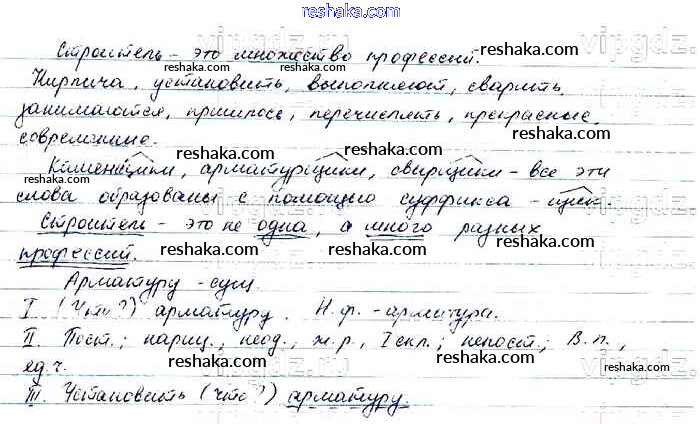 reshaka.com
Строитель - это множество профессий. reshaka.com
Кирпича, установить, выполняют, сварить,
занимаются, пришлось, перечислять, прекрасные,
современные. reshaka.com reshaka.com
reshaka.com
Каменщики, арматурщики, сварщики - все эти
reshaka.com
слова образованы с помощью суффикса -щик-.
reshaka.com
Строитель - это не одна, а много разных
профессий. reshaka.com reshaka.com
Арматуру - сущ.
I (Что?) арматуру. Н.ф. - арматура.
reshaka.com reshaka.com
II. Пост.; нариц., неод., ж.р., I скл.; непост.; В.п.,
ед.ч. reshaka.com reshaka.com
III. Установить (что?) арматуру.
reshaka.com